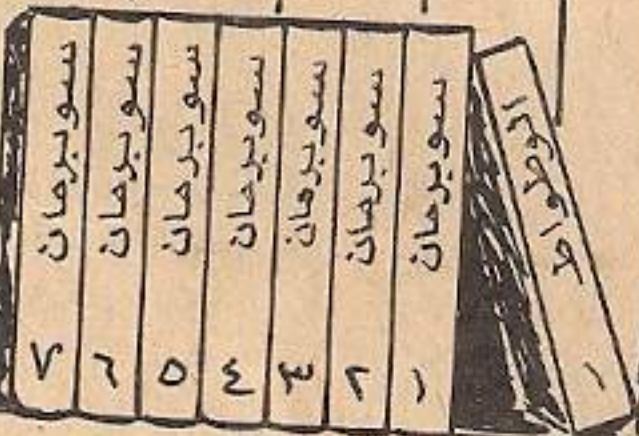 الوطواط ١
سوبرمان ١
سوبرمان ٢
سوبرمان ٣
سوبرمان ٤
سوبرمان ٥
سوبرمان ٦
سوبرمان ٧